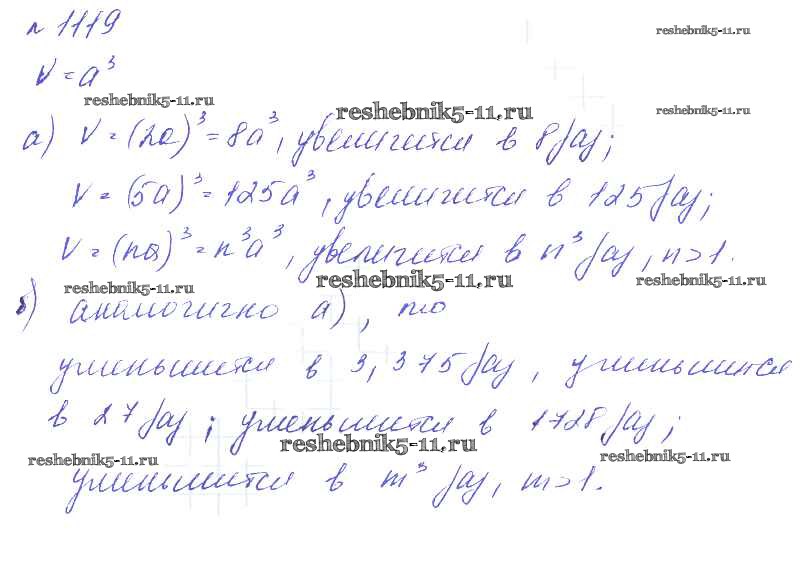 n 1119
reshebnik5-11.ru
V = a³
reshebnik5-11.ru
reshebnik5-11.ru
reshebnik5-11.ru
а) V = (2a)³ = 8a³, увеличится в 8 раз;
V = (5a)³ = 125a³, увеличится в 125 раз;
V = (na)³ = n³a³, увеличится в n³ раз, n > 1.
reshebnik5-11.ru
reshebnik5-11.ru
reshebnik5-11.ru
б) аналогично а), то
уменьшится в 3,375 раз, уменьшится
в 27 раз; уменьшится в 1728 раз;
reshebnik5-11.ru
reshebnik5-11.ru
reshebnik5-11.ru
уменьшится в m³ раз, m > 1.